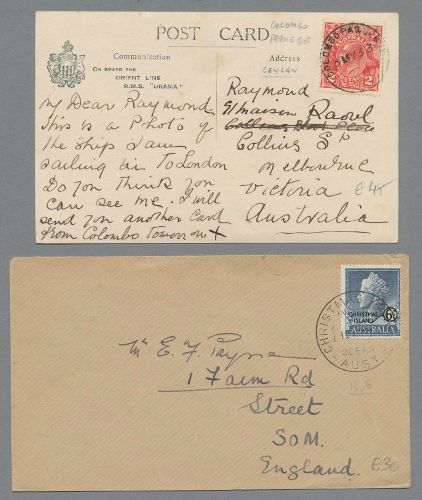 POST CARD
COLOMBO
PAQUEBOT
Communication
Address
ON BOARD THE
ORIENT LINE
R.M.S. "ORAMA"
CEYLAN
COLOMBO PAQUEBOT
2D
My Dear Raymond
This is a Photo of
the ship I am
sailing in To London
Do you Think you
can see me. I will
send you another Card
from Colombo Tomorrow X
Raymond
c/ Maison Raoul
Collins
Collins St
Melbourne
Victoria
Australia
£45
CHRISTMAS
ISLAND
6
AUSTRALIA
CHRISTMAS
OCEAN
AUST
Mr E. F. Payne
1 Farm Rd
Street
SOM.
England.
£30